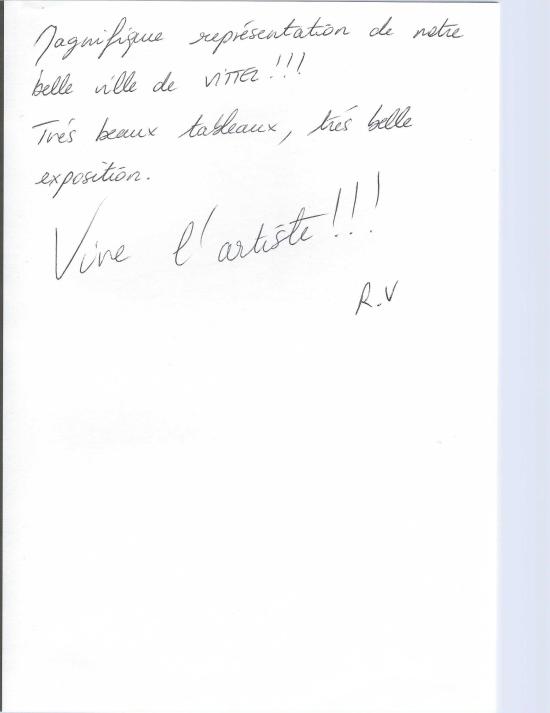 Magnifique représentation de notre
belle ville de VITTEL !!!
Trés beaux tableaux, trés belle
exposition.
Vive l'artiste !!!
R.V